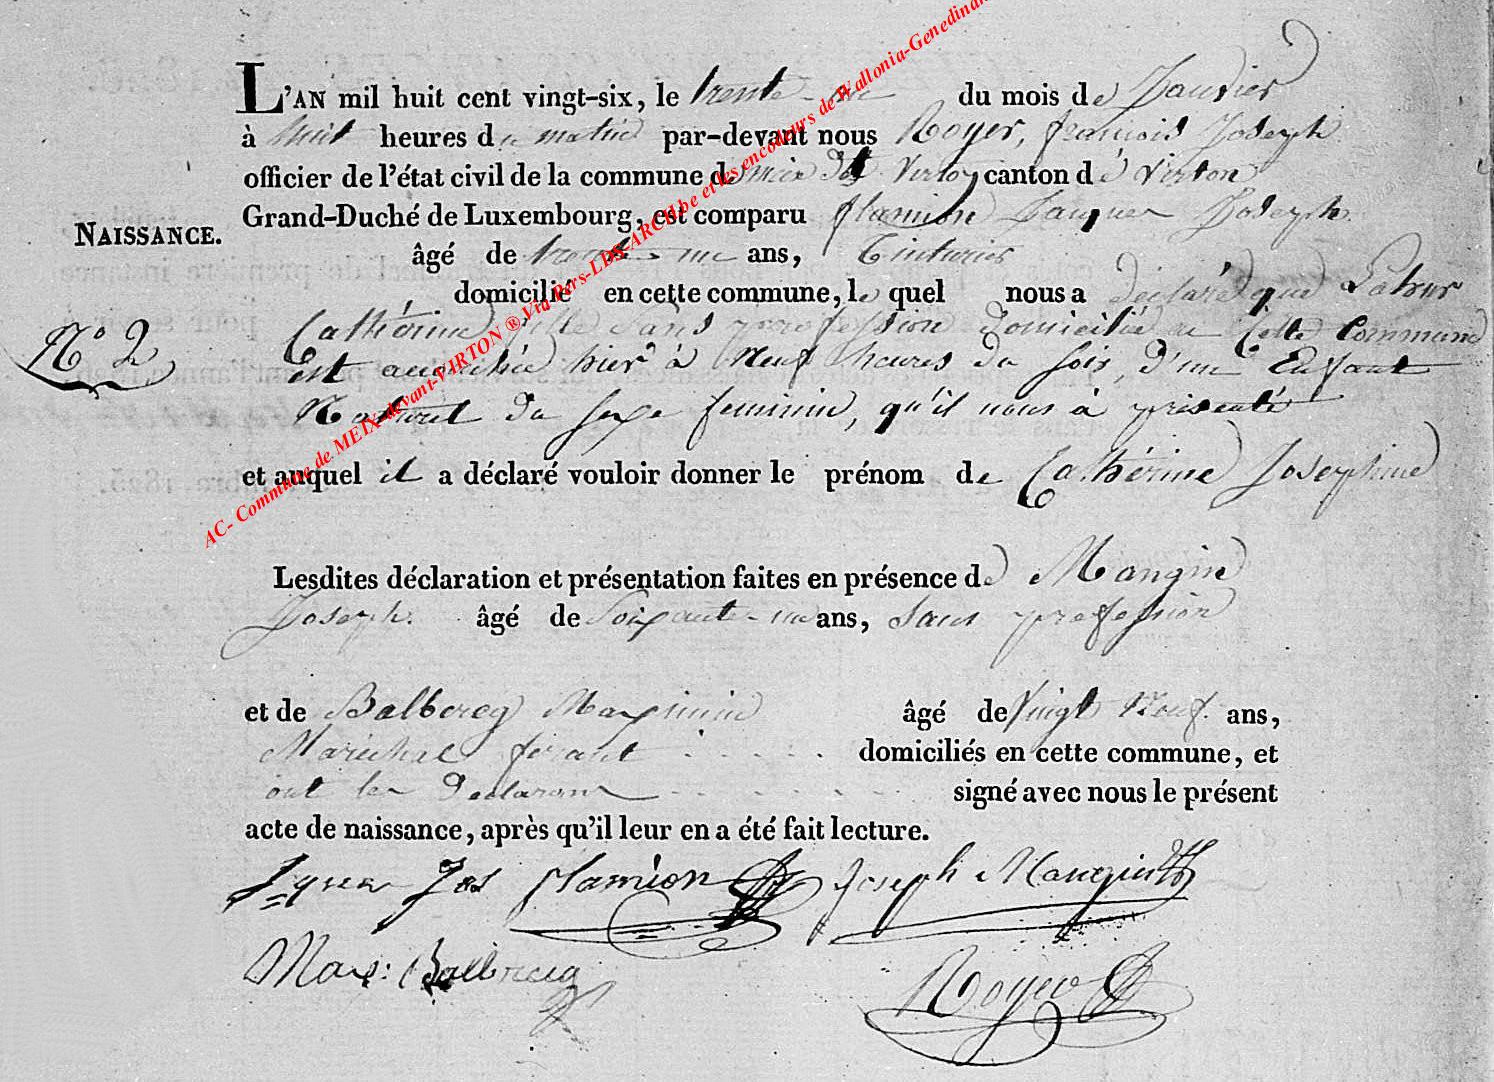 L'AN mil huit cent vingt-six, le trente-un du mois de Janvier
à huit heures du matin par-devant nous Royer, françois Joseph
officier de l'état civil de la commune de meix dt Virton canton de Virton
Grand-Duché de Luxembourg, est comparu flamion Jacques Joseph
NAISSANCE.
âgé de trente-un ans, Tinturier
domicilié en cette commune, le quel nous a déclaré que
N° 2
Cathérine fille sans profession domiciliée en Cette Commune
Est accouchée hier à Neuf heures du soir, d'un Enfant
Naturel du sexe feminin, qu'il nous à présenté
et auquel il a déclaré vouloir donner le prénom de Cathérine Josephine
Lesdites déclaration et présentation faites en présence de Mangin
Joseph. âgé de Soixante-un ans, Sans profession
et de Balbercq Maximin âgé de Vingt Neuf ans,
Maréchal ferant domiciliés en cette commune, et
ont les Declarans signé avec nous le présent
acte de naissance, après qu'il leur en a été fait lecture.
Jques Jos flamion Joseph Mangin
Max: Balbrecq
Royer
AC- Commune de MEIX-devant-VIRTON ® Via Pers-LDS-ARCH.be et les encodeurs de Wallonia-Genedinan